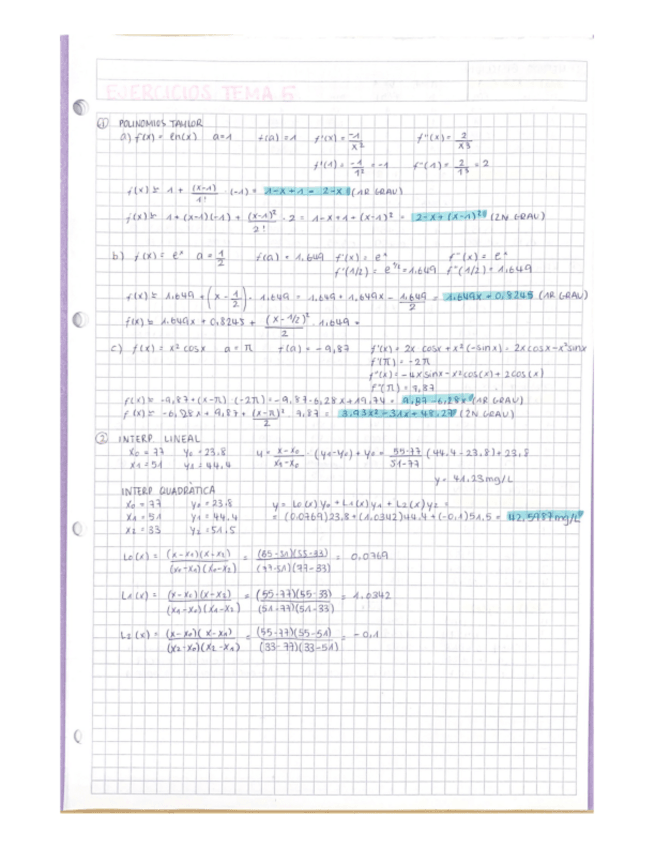 EJERCICIOS TEMA 5
① POLINOMIOS TAYLOR
a) f(x) = ln(x) a=1 f(a) = 1 f'(x) = -1/x² f''(x) = 2/x³
f'(1) = -1/1² = -1 f''(1) = 2/1³ = 2
f(x) ≃ 1 + (x-1)/1! · (-1) = 1-x+1 = 2-x (1R GRAU)
f(x) ≃ 1+(x-1)(-1) + (x-1)²/2! · 2 = 1-x+1+(x-1)² = 2-x+(x-1)² (2N GRAU)
b) f(x) = eˣ a = 1/2 f(a) = 1,649 f'(x) = eˣ f''(x) = eˣ
f'(1/2) = e^1/2 = 1,649 f''(1/2) = 1,649
f(x) ≃ 1,649 + (x - 1/2) · 1,649 = 1,649 + 1,649x - 1,649/2 = 1,649x + 0,8245 (1R GRAU)
f(x) ≃ 1,649x + 0,8245 + (x-1/2)²/2 · 1,649 =
c) f(x) = x² cosx a = π f(a) = -9,87 f'(x) = 2x cosx + x²(-sinx) = 2xcosx-x²sinx
f'(π) = -2π
f''(x) = -4xsinx-x²cos(x)+2cos(x)
f''(π) = 7,87
f(x) ≃ -9,87+(x-π) · (-2π) = -9,87-6,28x+19,74 = 9,87-6,28x (1R GRAU)
f(x) ≃ -6,28x + 9,87 + (x-π)²/2 · 7,87 = 3,93x² - 31x + 48,27 (2N GRAU)
② INTERP LINEAL
x₀ = 77 y₀ = 23,8 y = x-x₀/x₁-x₀ · (y₁-y₀) + y₀ = 55-77/51-77 (44,4-23,8)+23,8
x₁ = 51 y₁ = 44,4
y = 41,23 mg/L
INTERP QUADRÀTICA
x₀ = 77 y₀ = 23,8 y = L₀(x)y₀ + L₁(x)y₁ + L₂(x)y₂ =
x₁ = 51 y₁ = 44,4 = (0,0769)23,8+(1,0342)44,4+(-0,1)51,5 = 42,5987mg/L
x₂ = 33 y₂ = 51,5
L₀(x) = (x-x₁)(x-x₂)/(x₀-x₁)(x₀-x₂) = (55-51)(55-33)/(77-51)(77-33) = 0,0769
L₁(x) = (x-x₀)(x-x₂)/(x₁-x₀)(x₁-x₂) = (55-77)(55-33)/(51-77)(51-33) = 1,0342
L₂(x) = (x-x₀)(x-x₁)/(x₂-x₀)(x₂-x₁) = (55-77)(55-51)/(33-77)(33-51) = -0,1